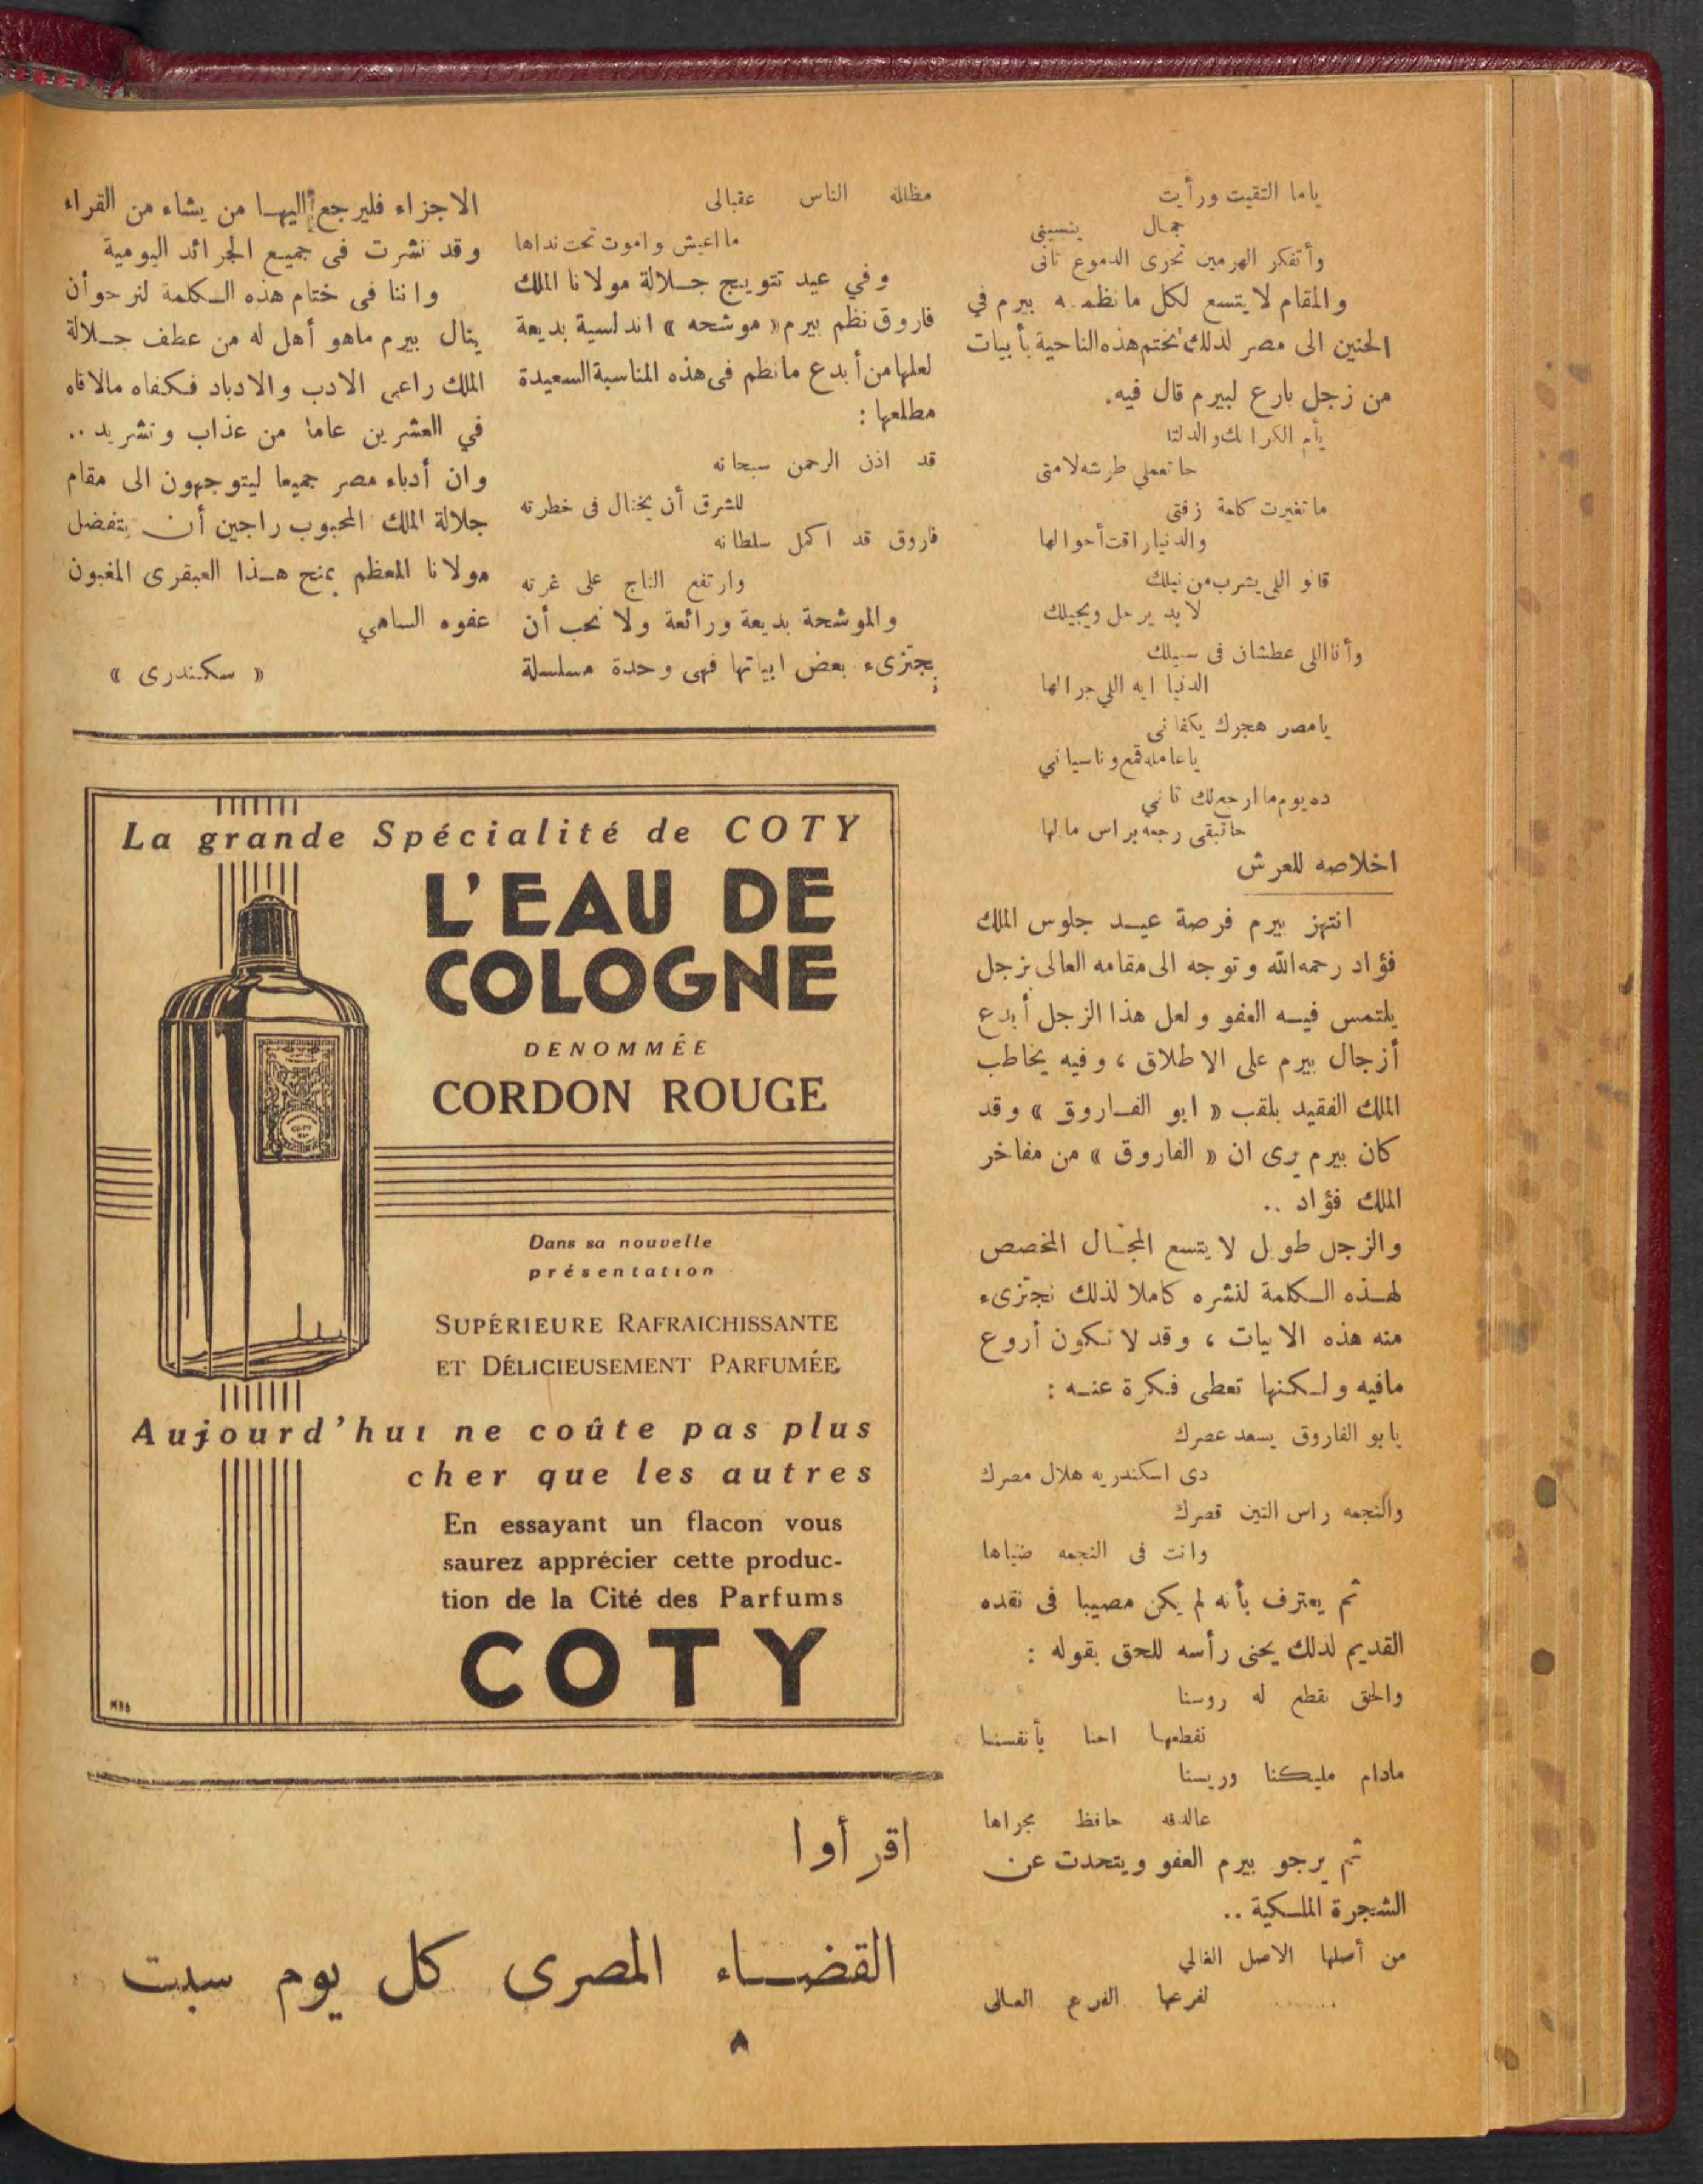 ياما التقيت ورأيت
جمال ينسينى
وأتفكر الهرمين تجرى الدموع تانى
والمقام لا يتسع لكل ما نظمه بيرم في
الحنين الى مصر لذلك نختم هذه الناحية بأبيات
من زجل بارع لبيرم قال فيه.
حا تعملي طرشه لامتى
ما تغيرت كلمة زفتى
والدنيا راقت أحوالها
قالو اللى يشرب من نيلك
لا بد يرحل ويجيلك
وأنا اللى عطشان فى سبيلك
الدنيا ايه اللي جرالها
يا مصر هجرك يكفانى
يا عامله قمع وناسيانى
ده يوم ما ارجع لك تانى
حاتبقى رجعه براس مالها
اخلاصه للعرش
انتهز بيرم فرصة عيد جلوس الملك
فؤاد رحمه الله وتوجه الى مقامه العالى بزجل
يلتمس فيه العفو ولعل هذا الزجل أبدع
أزجال بيرم على الاطلاق ، وفيه يخاطب
الملك الفقيد بلقب « ابو الفاروق » وقد
كان بيرم يرى ان « الفاروق » من مفاخر
الملك فؤاد ..
والزجل طويل لا يتسع المجال المخصص
لهذه الكلمة لنشره كاملا لذلك نجتزىء
منه هذه الابيات ، وقد لا تكون أروع
مافيه ولكنها تعطى فكرة عنه :
يابو الفاروق يسعد عصرك
دى اسكندريه هلال مصرك
والنجمه راس التين قصرك
وانت فى النجمه ضياها
ثم يعترف بأنه لم يكن مصيبا فى نقده
القديم لذلك يحنى رأسه للحق بقوله :
والحق نقطع له روسنا
نقطعها احنا بأنفسنا
مادام مليكنا وريسنا
عالدفه حافظ مجراها
ثم يرجو بيرم العفو ويتحدث عن
الشجرة الملكية ..
من أصلها الاصل الغالي
لفرعها الفرع العالى .......
مظلله الناس عقبالى
ما اعيش واموت تحت نداها
وفي عيد تتويج جلالة مولانا الملك
فاروق نظم بيرم « موشحه » اندلسية بديعة
لعلها من أبدع ما نظم فى هذه المناسبة السعيدة
مطلعها :
قد اذن الرحمن سبحانه
للشرق أن يختال فى خطرته
فاروق قد اكمل سلطانه
وارتفع التاج على غرته
والموشحة بديعة ورائعة ولا نحب أن
نجتزىء بعض ابياتها فهى وحدة مسلسلة
الاجزاء فليرجع اليها من يشاء من القراء
وقد نشرت فى جميع الجرائد اليومية
واننا فى ختام هذه الكلمة لنرجو أن
ينال بيرم ماهو أهل له من عطف جلالة
الملك راعى الادب والادباء فكفاه مالاقاه
في العشرين عاما من عذاب وتشريد ..
وان أدباء مصر جميعا ليتوجهون الى مقام
جلالة الملك المحبوب راجين أن يتفضل
مولانا المعظم بمنح هذا العبقرى المغبون
عفوه السامي
« سكندرى »
La grande Spécialité de COTY
L'EAU DE
COLOGNE
DENOMMÉE
CORDON ROUGE
Dans sa nouvelle
présentation
SUPÉRIEURE RAFRAICHISSANTE
ET DÉLICIEUSEMENT PARFUMÉE
Aujourd'hui ne coûte pas plus
cher que les autres
En essayant un flacon vous
saurez apprécier cette produc-
tion de la Cité des Parfums
COTY
اقرأوا
القضاء المصرى كل يوم سبت
٨